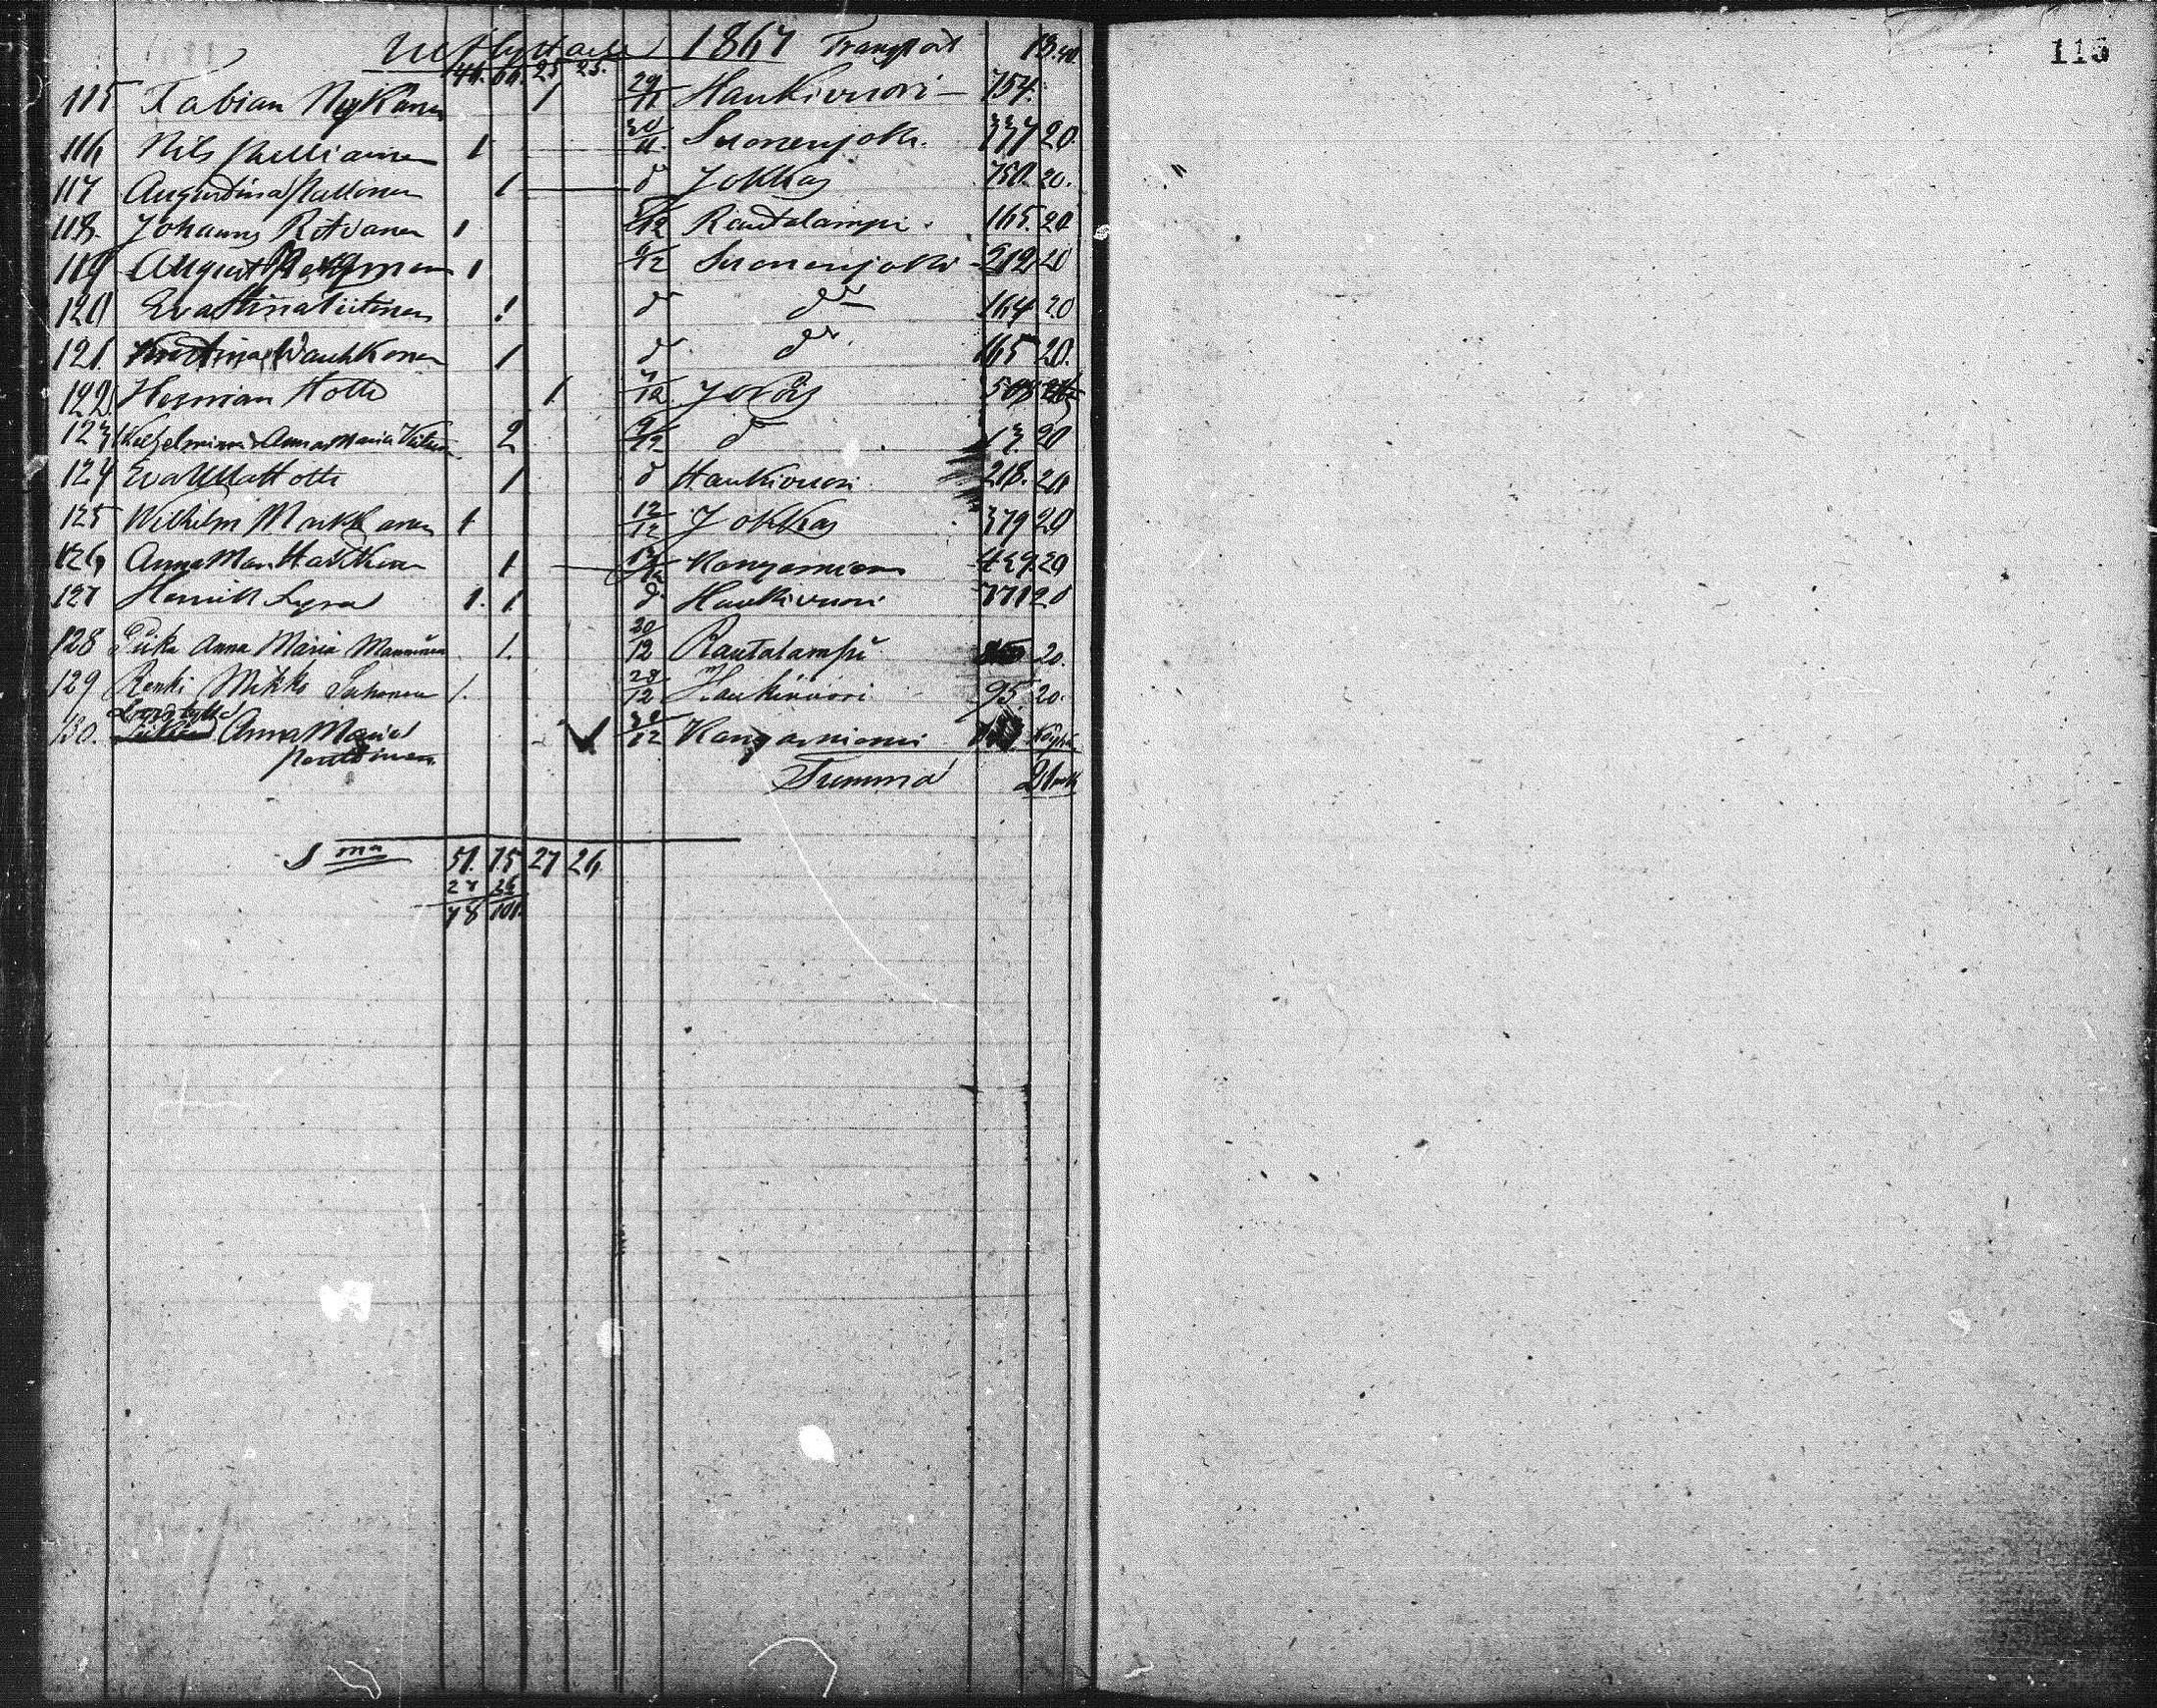 Utflyttade 1867 Transport 13.40.
44. 66. 25. 25.
115 Fabian Nykänen 1 29/11 Haukivuori — 754.
116 Nils Pulliainen 1 30/11. Suonenjoki. 337 20.
117 Augustina Pullinen 1 d Jokkas 750. 20.
118. Johannes Ritvanen 1 5/12 Rautalampi. 165. 20
119 August 1 6/12 Suonenjoki 212 20
120 Eva Stina Tiitinen 1 d d 164 20
121. Kristina Wauhkonen 1 d d 165 20.
122. Herman Hotti 1 7/12 Jokkas
123 Wilhelmina & Anna Maria 2 9/12 d 13. 20
124 Eva Ulla Hotti 1 d Haukivuori 218. 20
125 Wilhelm Markkanen 1 12/12 Jokkas 379 20
126 Anna Mar. 1 13/12 Kangasniemi 439. 20
127 Henrik Lyra 1. 1 d Haukivuori 771 20
128 Piika Anna Maria Manninen 1. 20/12 Rautalampi 20.
129 Renki Mikko Tuhonen 1. 28/12 Haukivuori 95. 20.
130. Anna Maria 30/12 Kangasniemi Köyhä
Pentinen
Summa 21 mk
S ma 51. 75 27 26
27 26
78 101.
115